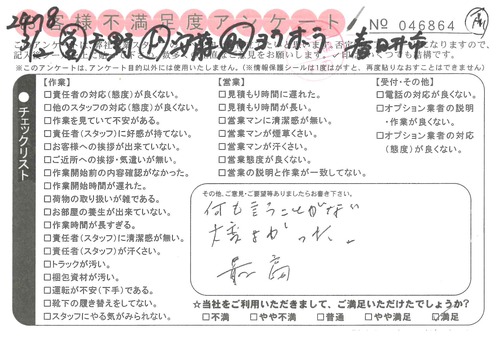 お客様不満足度アンケート
No 046864
春日井市
※このアンケートは、アンケート目的以外には使用しません。(※情報保護シールは1度はがすと、再度貼りなおすことはできません)
チェックリスト
【作業】
□責任者の対応(態度)が良くない。
□他のスタッフの対応(態度)が良くない。
□作業を見ていて不安がある。
□責任者(スタッフ)に好感が持てない。
□お客様への挨拶が出来ていない。
□ご近所への挨拶・気遣いが無い。
□作業開始前の内容確認がなかった。
□作業開始時間が遅れた。
□荷物の取り扱いが雑である。
□お部屋の養生が出来ていない。
□作業時間が長すぎる。
□責任者(スタッフ)に清潔感が無い。
□責任者(スタッフ)が汗くさい。
□トラックが汚い。
□梱包資材が汚い。
□運転が不安(下手)である。
□靴下の履き替えをしてない。
□スタッフにやる気がみられない。
【営業】
□見積もり時間に遅れた。
□見積もり時間が長い。
□営業マンに清潔感が無い。
□営業マンが煙草くさい。
□営業マンが汗くさい。
□営業態度が良くない。
□営業の説明と作業が一致してない。
【受付・その他】
□電話の対応が良くない。
□オプション業者の説明
・作業が良くない。
□オプション業者の対応
(態度)が良くない。
その他、ご意見・ご要望等ありましたらお書き下さい。
何も言うことがない
大変よかった。
最高
☆当社をご利用いただきまして、ご満足いただけたでしょうか?
□不満 □やや不満 □普通 □やや満足 ☑満足